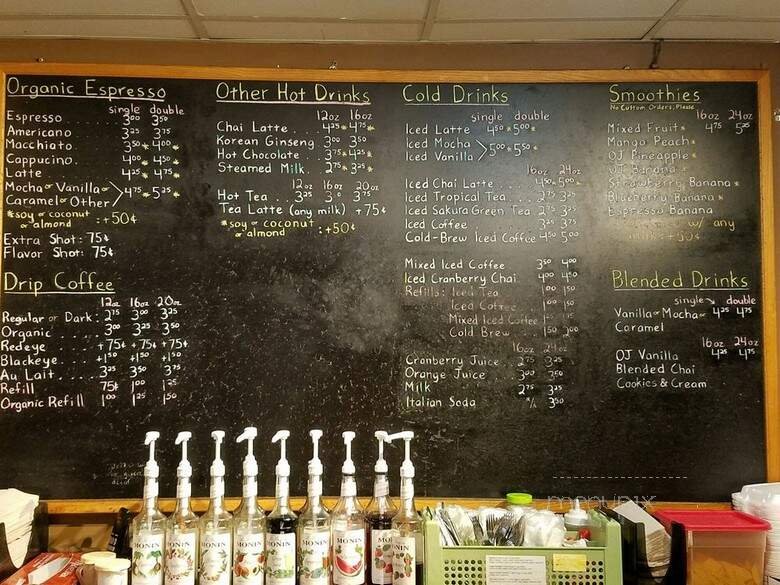 Organic Espresso
single double
Espresso 3⁰⁰ 3⁵⁰
Americano 3²⁵ 3⁷⁵
Macchiato 3⁵⁰* 4⁰⁰*
Cappucino 4⁰⁰* 4⁵⁰*
Latte 4²⁵* 4⁷⁵*
Mocha or Vanilla or
Caramel or Other 4⁷⁵* 5²⁵*
*soy or coconut
or almond : +50¢
Extra Shot: 75¢
Flavor Shot: 75¢
Drip Coffee
12oz 16oz 20oz
Regular or Dark: 2⁷⁵ 3⁰⁰ 3²⁵
Organic 3⁰⁰ 3²⁵ 3⁵⁰
Redeye +75¢ +75¢ +75¢
Blackeye +1⁵⁰ +1⁵⁰ +1⁵⁰
Au Lait 3²⁵ 3⁵⁰ 3⁷⁵
Refill 75¢ 1⁰⁰ 1²⁵
Organic Refill 1⁰⁰ 1²⁵ 1⁵⁰
Other Hot Drinks
12oz 16oz
Chai Latte 4²⁵* 4⁷⁵*
Korean Ginseng 3⁰⁰ 3⁵⁰
Hot Chocolate 3⁷⁵* 4²⁵*
Steamed Milk 2⁷⁵* 3²⁵*
12oz 16oz 20oz
Hot Tea 3²⁵ 3⁷⁵
Tea Latte (any milk) +75¢
*soy or coconut
or almond : +50¢
Cold Drinks
single double
Iced Latte 4⁵⁰* 5⁰⁰*
Iced Mocha
Iced Vanilla 5⁰⁰* 5⁵⁰*
16oz 24oz
Iced Chai Latte 4⁵⁰* 5⁰⁰*
Iced Tropical Tea 2⁷⁵ 3²⁵
Iced Sakura Green Tea 2⁷⁵ 3²⁵
Iced Coffee 3²⁵ 3⁷⁵
Cold-Brew Iced Coffee 4⁵⁰ 5⁰⁰
Mixed Iced Coffee 3⁵⁰ 4⁰⁰
Iced Cranberry Chai 4⁰⁰ 4⁵⁰
Refills: Iced Tea 1⁰⁰ 1⁵⁰
Iced Coffee 1⁰⁰ 1⁵⁰
Mixed Iced Coffee 1²⁵
Cold Brew 1⁵⁰ 2⁰⁰
16oz 24oz
Cranberry Juice 2⁷⁵ 3²⁵
Orange Juice 3⁰⁰ 3⁵⁰
Milk 2⁷⁵ 3²⁵
Italian Soda n/a 3⁵⁰
Smoothies
No Custom Orders, Please
16oz 24oz
Mixed Fruit* 4⁷⁵ 5²⁵
Mango Peach*
OJ Pineapple*
OJ Banana*
Strawberry Banana*
Blueberry Banana*
Espresso Banana
w/ any
+50¢
Blended Drinks
single double
Vanilla or Mocha or 4²⁵ 4⁷⁵
Caramel
16oz 24oz
OJ Vanilla 4²⁵ 4⁷⁵
Blended Chai
Cookies & Cream
MONIN
MONIN
MONIN
MONIN
MONIN
MONIN
MONIN
MONIN
MONIN
menupix